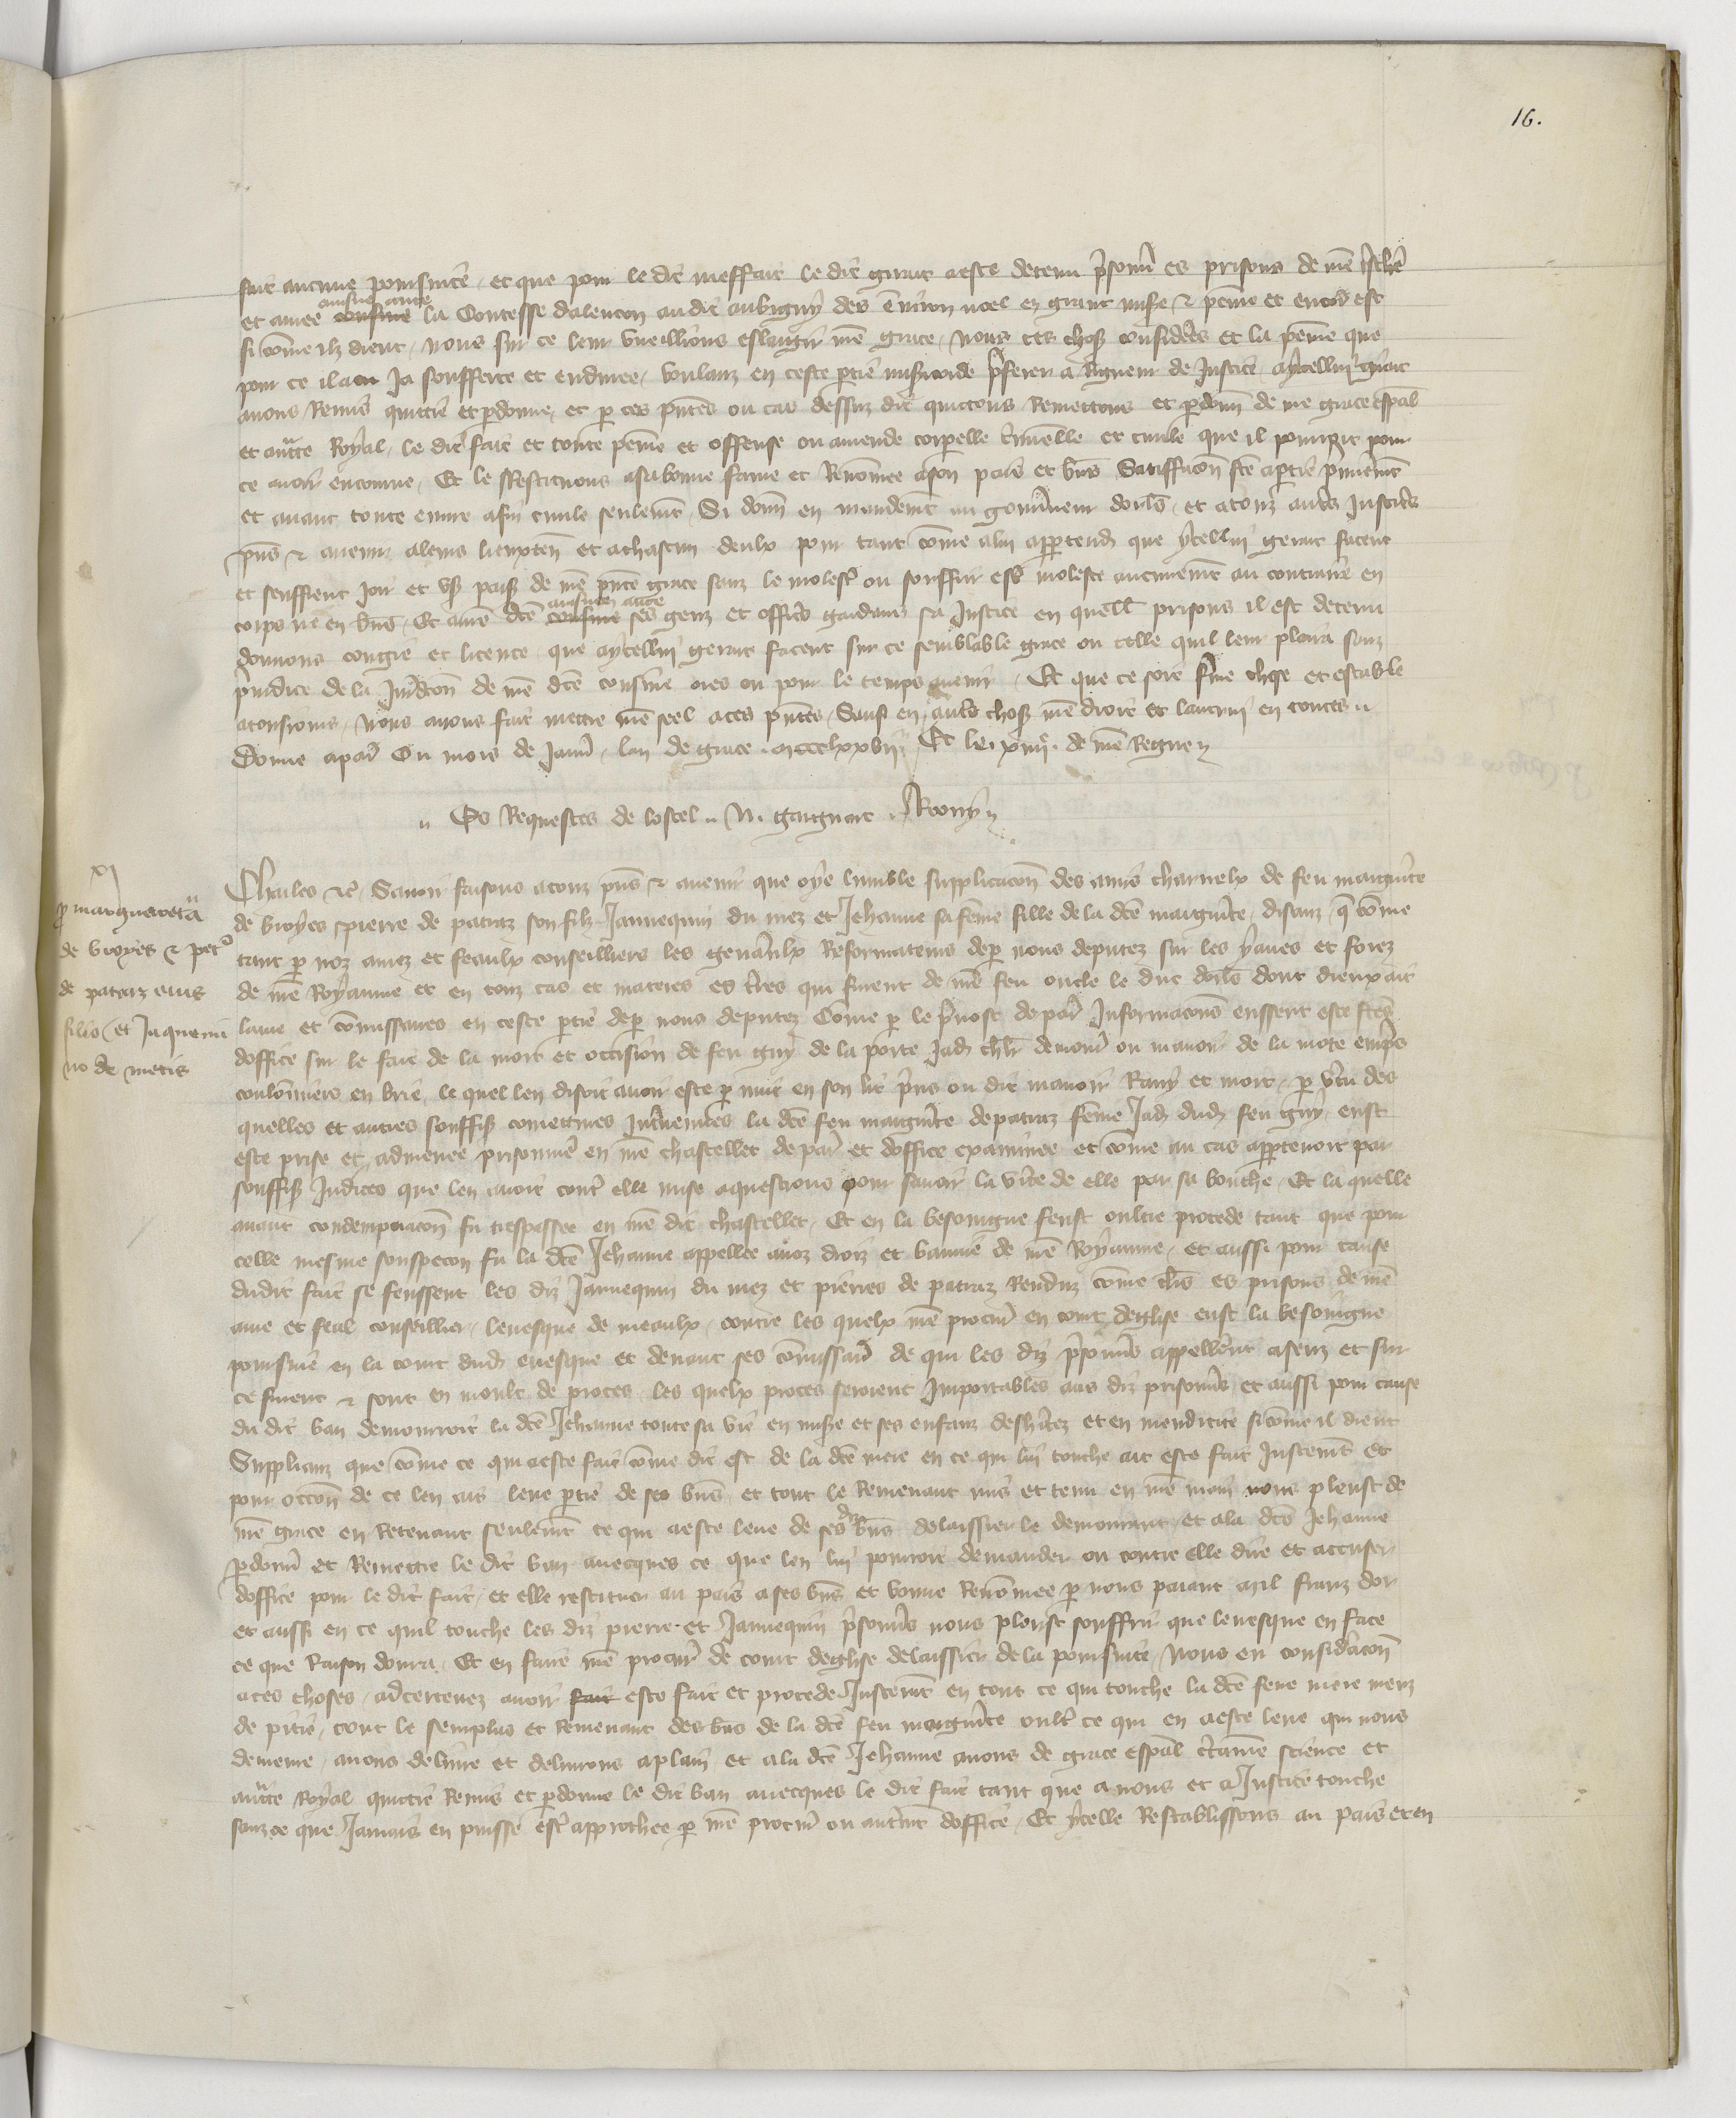 16.
fait aucune poursuite et que pour le dit meffait le dit girart a este detenu p̃sonñ es prisons de nr̃e tͬschr̃e
et amee cousine cousine ante la Contesse dalencon au dit aubigny des environ noel en grant mis̃e & peine et encor̃ est
si cõme ilz dient, Nous sur ce leur vueillions eslargir nr̃e grace, Nous ces choses considerees et la peine que
pour ce il a eu Ja soufferte et enduree, voulanz en ceste p̱tie misericorde p̃ferer a Rigueur de Justice, a ycellui girart
avons Remis quittie et p̱donne, et p̱ ces pñtes ou cas dessuz dit quictons Remettons et p̱donñ de nr̃e grace esp̃al
et auct̃e Royal, le dit fait et toute peine et offense ou amende corporelle c̃iminelle et civile que il pourroit pour
ce avoir encourue, Et le Restituons a sa bonne fame et Renõmee a son pais et bñs Satiffacõn fc̃e a p̱tie p̃mierem̃t
et avant toute euvre a fin civile seulem̃t, Si donñ en mandem̃t au gouv̾neur dorl̃s, et a touz autr̃s Justicr̃s
pñs & avenir a leurs lieuxteñ et a chascun deulx pour tant cõme a lui app̱tendr̃ que ycellui girart facent
et seuffrent Joir et user paisib̃ de nr̃e pñte grace sanz le molest̾ ou souffrir est̾ moleste aucunem̃t au contraire en
corps ne en biens, Et a nr̃e dc̃e cousine cousine ante ses genz et officr̃s gardans sa Justice en quell̃ prisons il est detenu
donnons congie et licence que a ycellui girart facent sur ce semblable grace ou telle quil leur plaira sanz
p̃iudice de la Jur̃dicõn de nr̃e dc̃e cousine ores ou pour le temps avenir, Et que ce soit f̾me chose et estable
a tousiours, Nous avons fait mettre nr̃e seel a ces pñtes, Sauf en autr̃s choses nr̃e droit et lautrui en toutes
Donne a par̃ Ou mois de Janv̾, lan de grace mccclxxvii, Et le xiiii͛ de nr̃e Regne
Es Requestes de lostel N. gaignart Rony
XI
p̱ margueretã
de broyes & pet̾
de patraz eius
filio et Jaquemi
no de metis
Charles &c̃ Savoir faisons a touz pñs & avenir que oye lumble supplicacõn des amis charnelx de feu marguer̃ite
de broyes pierre de patraz son filz Jannequin du mez et Jehanne sa fem̃e fille de la dc̃e marguer̃ite, disanz, q̃ cõme
tant p̱ noz amez et feaulx conseilliers les gen̾aulx Reformateurs de p̱ nous deputez sur les yaues et forez
de nr̃e Royaume et en touz cas et matieres es t̾res qui furent de nr̃e feu oncle le duc dorl̃s dont dieux ait
lame et cõmissaires en ceste p̱tie de p̱ nous deputez Cõme p̱ le p̾vost de par̃ Informacõns eussent este fc̃es
doffice sur le fait de la mort et occision de feu guy de la porte Jad̃ chl̃r demour̃ ou manoir de la mote emp̾s
coulõmiers en brie, le quel len disoit avoir este p̱ nuit en son lit p̾ns ou dit manoir Ravy et mort, p̱ v̾tu des
quelles et autres souffis̃ cõmettures Jnt̾venues la dc̃e feu marguer̃ite de patraz fem̃e Jad̃ dud̃ feu guy eust
este prise et admenee prisonniere en nr̃e chastellet de par̃ et doffice examinee et cõme au cas app̱tenoit par
souffis̃ Judices que len avoit cont̾ elle mise a questions pour savoir la v̾ite de elle par sa bouche, Et la quelle
avant condempnacõn fu trespassee en nr̃e dit chastellet, Et en la besoingne feust oultre procede tant que pour
celle mesme souspecon fu la dc̃e Jehanne appellee a noz droiz et bannie de nr̃e Royaume, et aussi pour cause
dudit fait se feussent les diz Jannequin du mez et pierres de patraz Renduz cõme cl̃rs es prisons de nr̃e
ame et feal conseillier, levesque de meaulx, contre les quelx nr̃e procur̃ en court deglise eust la besoingne
poursuie en la court dud̃ evesque et devant ses cõmissair̃ de qui les diz p̾sonñs appeller̾nt a senz et sur
ce furent & sont en moult de proces les quelx proces seroient Jmportables aus diz prisonñs et aussi pour cause
du dit ban demourroit la dc̃e Jehanne toute sa vie en mis̃e et ses enfanz desh̾itez et en mendicite si cõme il dient
Supplianz que cõme ce qui a este fait cõme dit est de la dc̃e mere en ce qui lui touche ait este fait Justem̃t Et
pour occõn de ce len ait leve p̱tie de ses bñs et tout le Remenant mis et tenu en nr̃e main nous pleust de
nr̃e grace en Retenant seulem̃t ce qui a este leve de ses d̃ bñs delaissier le demourant, et a la dc̃e Jehanne
p̱donñ et Remettre le dit ban avecques ce que len lui pourroit demander ou contre elle dire et accuser
doffice pour le dit fait, et elle restituer au pais a ses bñs et bonne Renõmee p̱ nous paiant mil franz dor
et aussi en ce quil touche les diz pierre et Jannequin p̾sonñs nous pleust souffrir que levesque en face
ce que Raison donra, Et en faire nr̃e procur̃ de court deglise delaissier de la poursuite, Nous en considacõn
a ces choses, acertenez avoir fait este fait et procede Justem̃t en tout ce qui touche la dc̃e feue mere meuz
de pitie, tout le semplus et Remenant des bñs de la dc̃e feu marguer̃ite oult̾ ce qui en a este leve qui nous
demeure, avons delivre et delivrons a plain, et a la dc̃e Jehanne avons de grace esp̃al c̾taine science et
auct̃e Royal quittie Remis et p̱donne le dit ban avecques le dit fait tant que a nous et a Justice touche
sanz ce que Jamais en puisse est̾ approchee p̱ nr̃e procur̃ ou autrem̃t doffice, Et ycelle Restablissons au pais et en